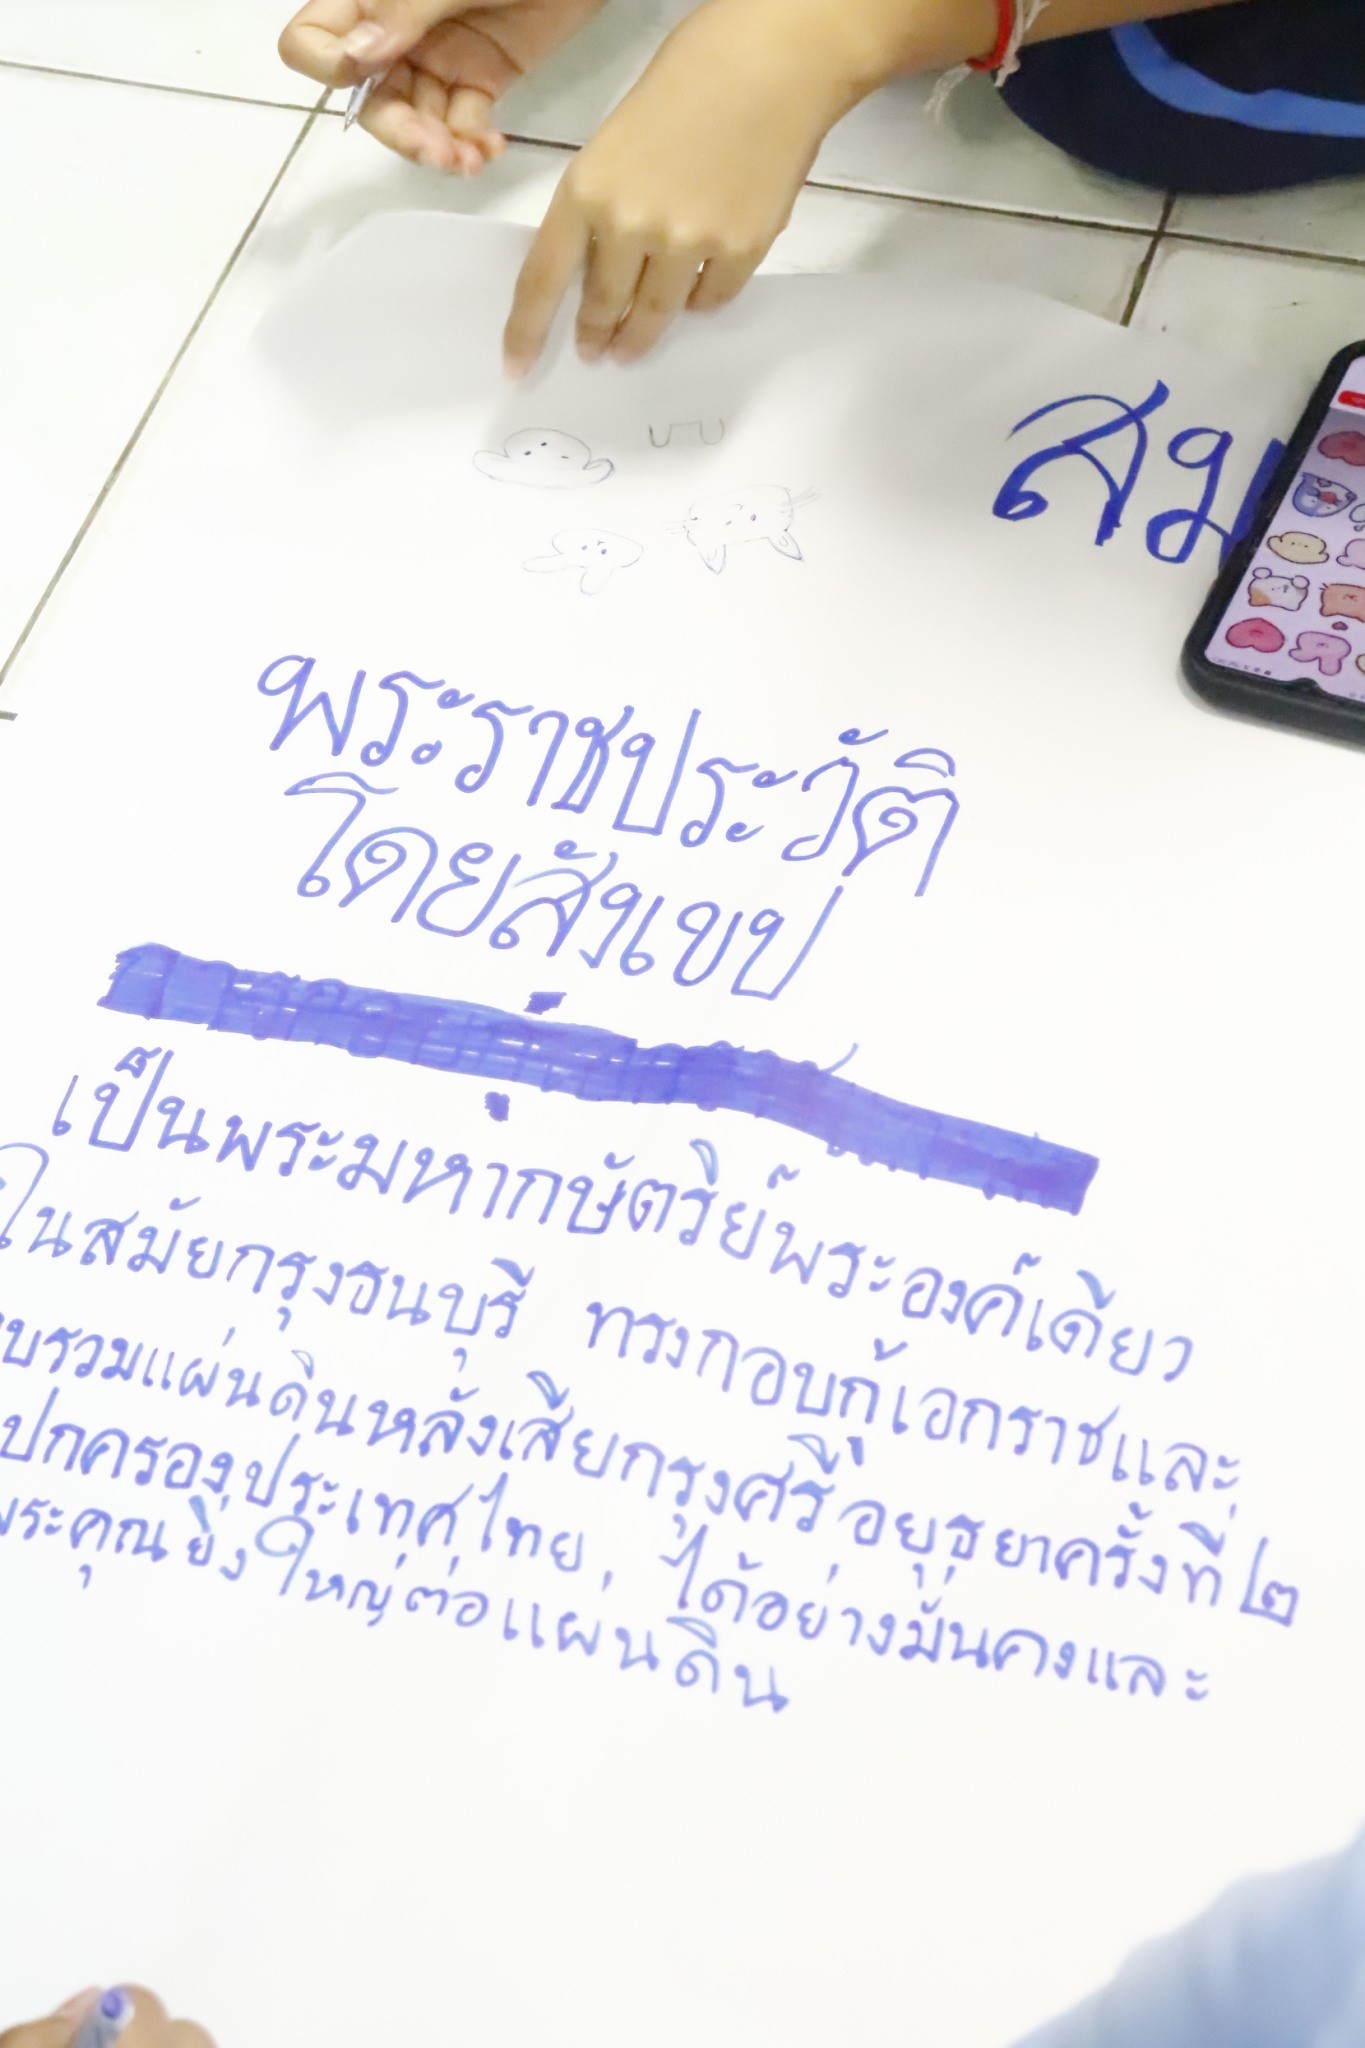 สม
พระราชประวัติ
โดยสังเขป
เป็นพระมหากษัตริย์พระองค์เดียว
ในสมัยกรุงธนบุรี ทรงกอบกู้เอกราชและ
รวมแผ่นดินหลังเสียกรุงศรีอยุธยาครั้งที่ ๒
ปกครองประเทศไทย ได้อย่างมั่นคงและ
พระคุณยิ่งใหญ่ต่อแผ่นดิน